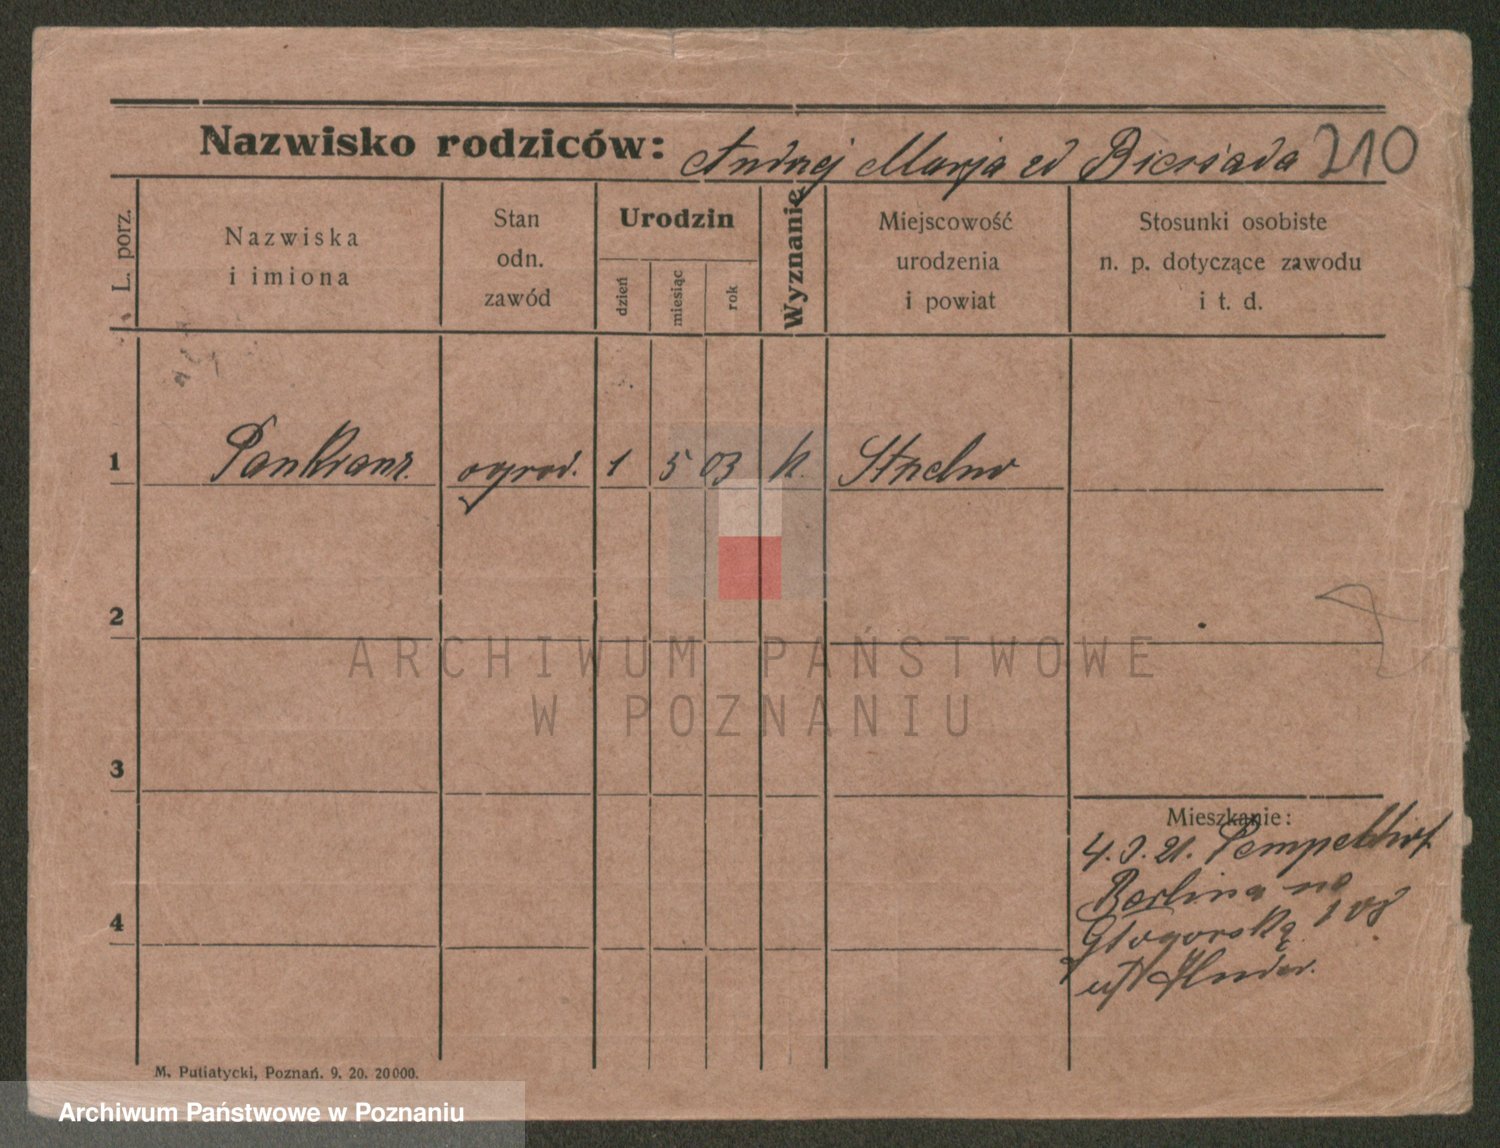 Nazwisko rodziców: Andrzej Marja zd Biesiada 210
L. porz.
Nazwiska
i imiona
Stan
odn.
zawód
Urodzin
dzień
miesiąc
rok
Wyznanie
Miejscowość
urodzenia
i powiat
Stosunki osobiste
n. p. dotyczące zawodu
i t. d.
1 ogrod. 1 5 03 k. Strzelno
2
3
4
Mieszkanie:
4. 21.
Berlina na
Głogowską 108
M. Putiatycki, Poznań. 9. 20. 20000.
ARCHIWUM PAŃSTWOWE
W POZNANIU
Archiwum Państwowe w Poznaniu